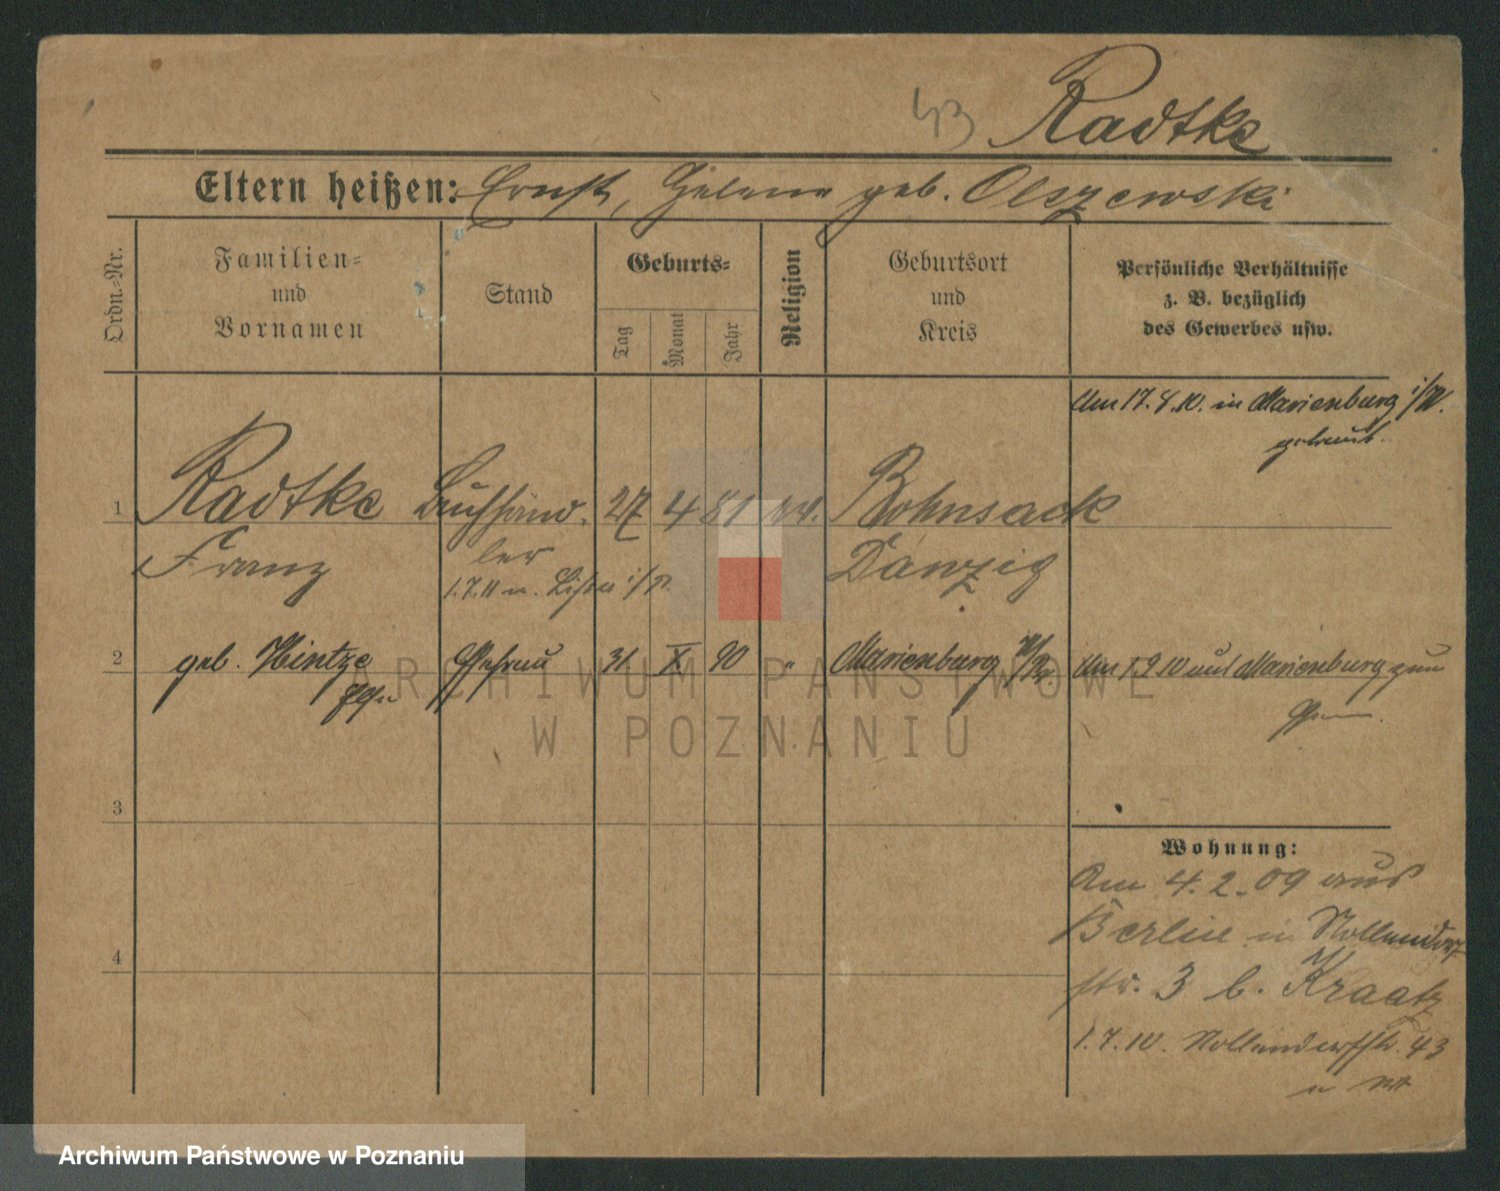 43 Radtke
Eltern heißen: Ernst, Helene geb. Olszewski
Ordn.-Nr.
Familien-
und
Vornamen
Stand
Geburts-
Tag
Monat
Jahr
Religion
Geburtsort
und
Kreis
Persönliche Verhältnisse
z. B. bezüglich
des Gewerbes usw.
Am 17. 8. 10. in Marienburg i/W.
getraut.
1 Radtke Buchhänd- 27 4 81 Bohnsack
Franz ler Danzig
1.7.11 n.
2 geb. Hintze Ehefrau 31. X. 90 " Marienburg W/Pr Am 1.9 10 aus Marienburg zum
3
4
Wohnung:
Am 4. 2. 09 aus
Berlin in Nollendorf
str. 3 b. Kraatz
1. 7. 10. Nollendorfstr. 43
ARCHIWUM PAŃSTWOWE
W POZNANIU
Archiwum Państwowe w Poznaniu